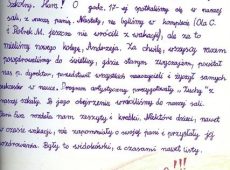 Szkolny. Hura! O godz. 17-ej spotkaliśmy się w naszej
sali, z naszą panią. Niestety, nie byliśmy w komplecie (Ola C.
i Rolnik M. jeszcze nie wrócili z wakacji), ale za to
mieliśmy nowego kolegę, Andrzeja. Za chwilę, wszyscy razem
powędrowaliśmy do świetlicy, gdzie starym zwyczajem, powitał
nas p. dyrektor, przedstawił wszystkich nauczycieli i życzył samych
sukcesów w nauce. Program artystyczny przygotowały "Zuchy" z
naszej szkoły. Po jego obejrzeniu wróciliśmy do naszej sali.
Pani Ewa rozdała nam zeszyty i książki. Niektóre dzieci, nawet
w czasie wakacji, nie zapomniały o swojej pani i przysłały jej
pozdrowienia. Były to widokówki, a czasami nawet listy.
!!!